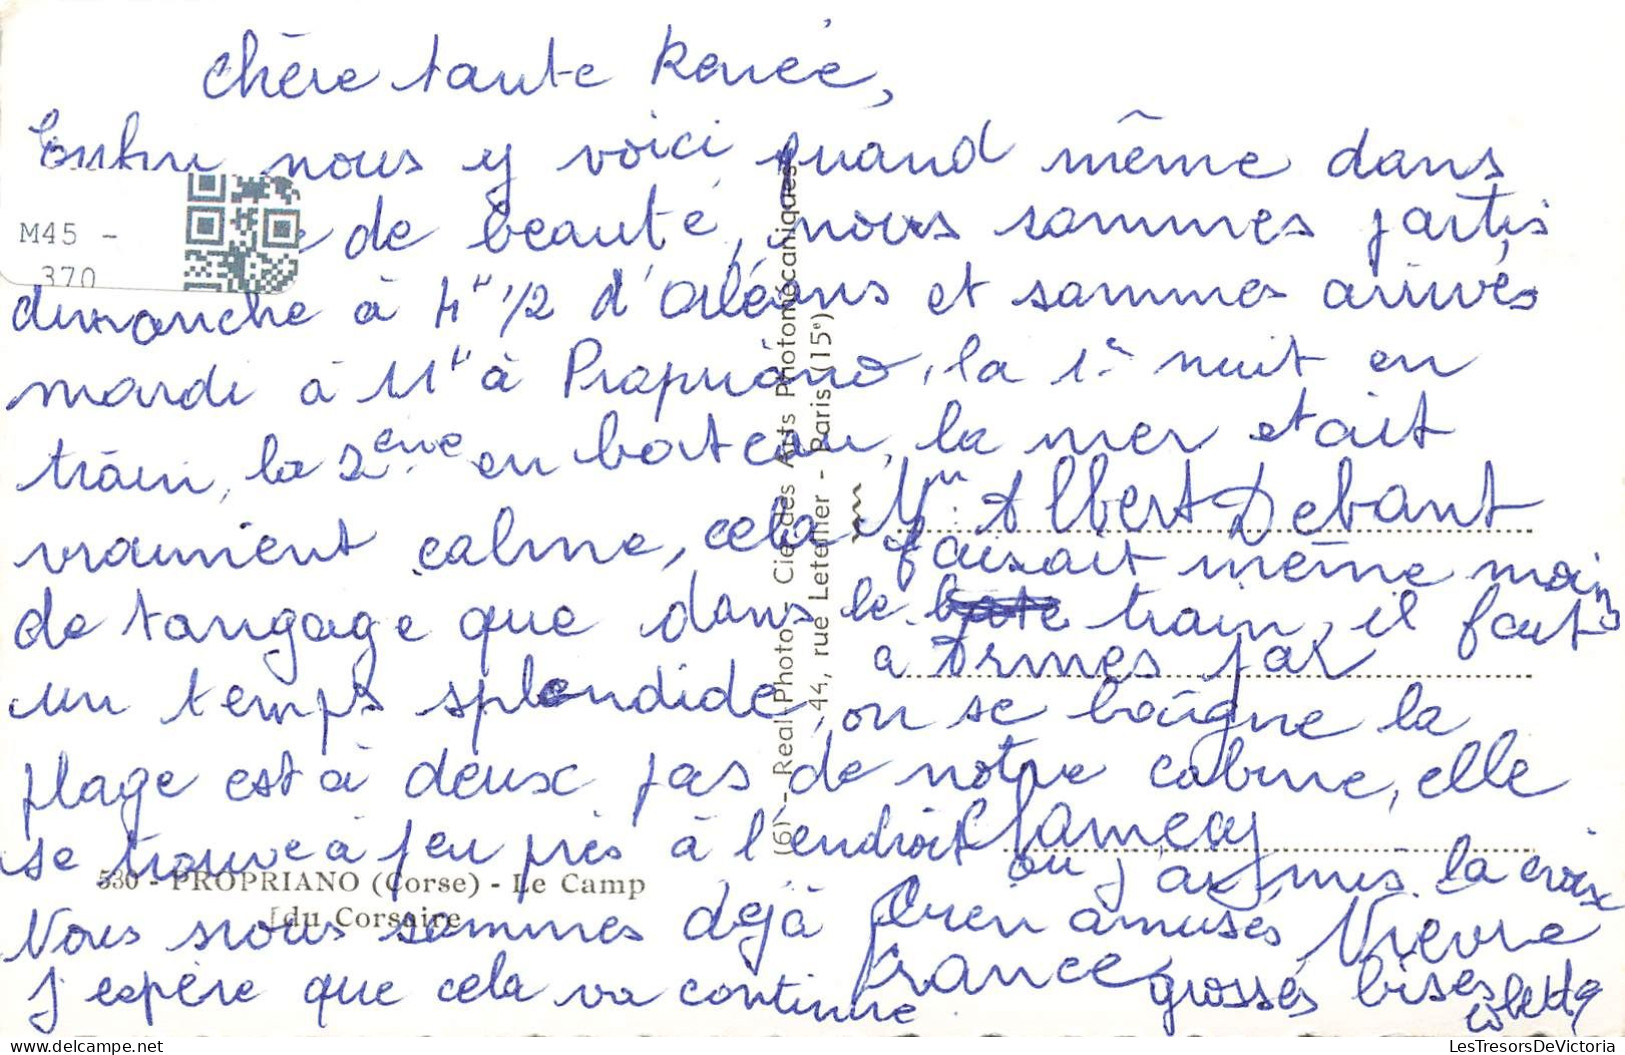 Chère tante Renée,
Enfin nous y voici quand même dans
M45 -
370
de beauté, nous sommes partis
dimanche à 4h 1/2 d'Orléans et sommes arrivés
mardi à 11h à Propriano, la 1e nuit en
train, la 2eme en bateau, la mer était
vraiment calme, cela faisait même moins
de tangage que dans le train, il fait
un temps splendide, on se baigne la
plage est à deux pas de notre cabine, elle
se trouve à peu près à l'endroit où j'ai mis la croix
Nous nous sommes déjà bien amusés
J'espère que cela va continuer
grosses bises
Colette
Mme Albert Debant
a Armes par
Clamecy
Nièvre
France
530 - PROPRIANO (Corse) - Le Camp
[du Corsaire
(6) - Real Photo - Cie des Arts Photomécaniques
44, rue Letellier - Paris (15e)
LesTresorsDeVictoria